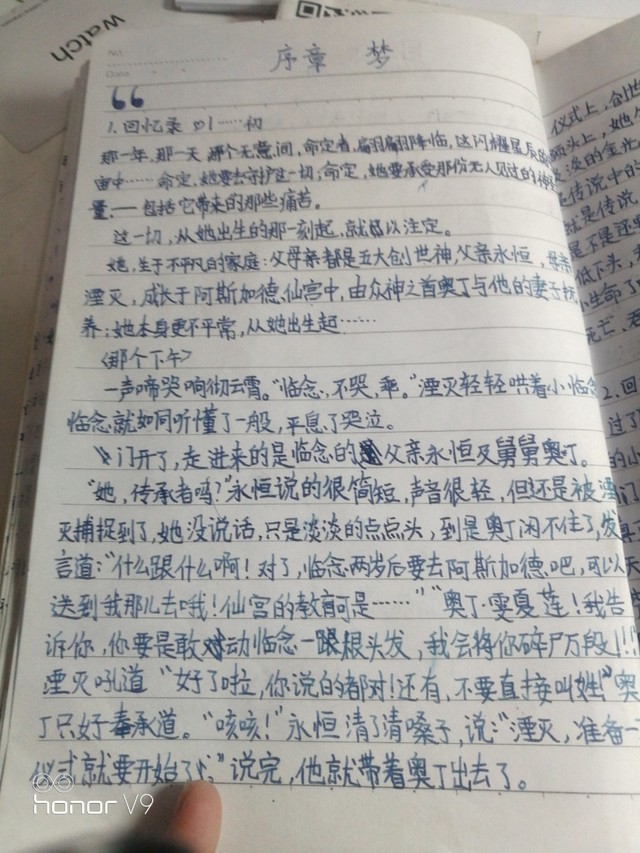 watch
No.
Date
序章 梦
1.回忆录 01……初
那一年,那一天,那个无意间,命定者,翩翩降临,这闪耀星辰的
宙中……命定,她要去守护这一切;命定,她要承受那份无人见过的神
量,——包括它带来的那些痛苦。
这一切,从她出生的那一刻起,就都以注定。
她,生于不平凡的家庭:父母亲都是五大创世神,父亲永恒,母亲
湮灭,成长于阿斯加德仙宫中,由众神之首奥丁与他的妻子抚
养;她本身更不平常,从她出生起……
<那个下午>
一声啼哭响彻云霄。“临念,不哭,乖。”湮灭轻轻哄着小临念
临念就如同听懂了一般,平息了哭泣。
门开了,走进来的是临念的父亲永恒及舅舅奥丁。
“她,传承者吗?”永恒说的很简短,声音很轻,但还是被湮
灭捕捉到了,她没说话,只是淡淡的点点头,到是奥丁闲不住了,发
言道:“什么跟什么啊!对了,临念两岁后要去阿斯加德吧,可以
送到我那儿去哦!仙宫的教育可是……”“奥丁·雯夏莲!我告
诉你,你要是敢动临念一根头发,我会将你碎尸万段!!!
湮灭吼道“好了啦,你说的都对!还有,不要直接叫姓!”奥
丁只好奉承道。“咳咳!”永恒清了清嗓子,说:“湮灭,准备一
仪式就要开始了。”说完,他就带着奥丁出去了。
仪式上,创世
头上,她
的金光
传说中的
就是传说
是不是还
低下头,
小生命了
死亡、
2.回
过了
的小
门
honor V9